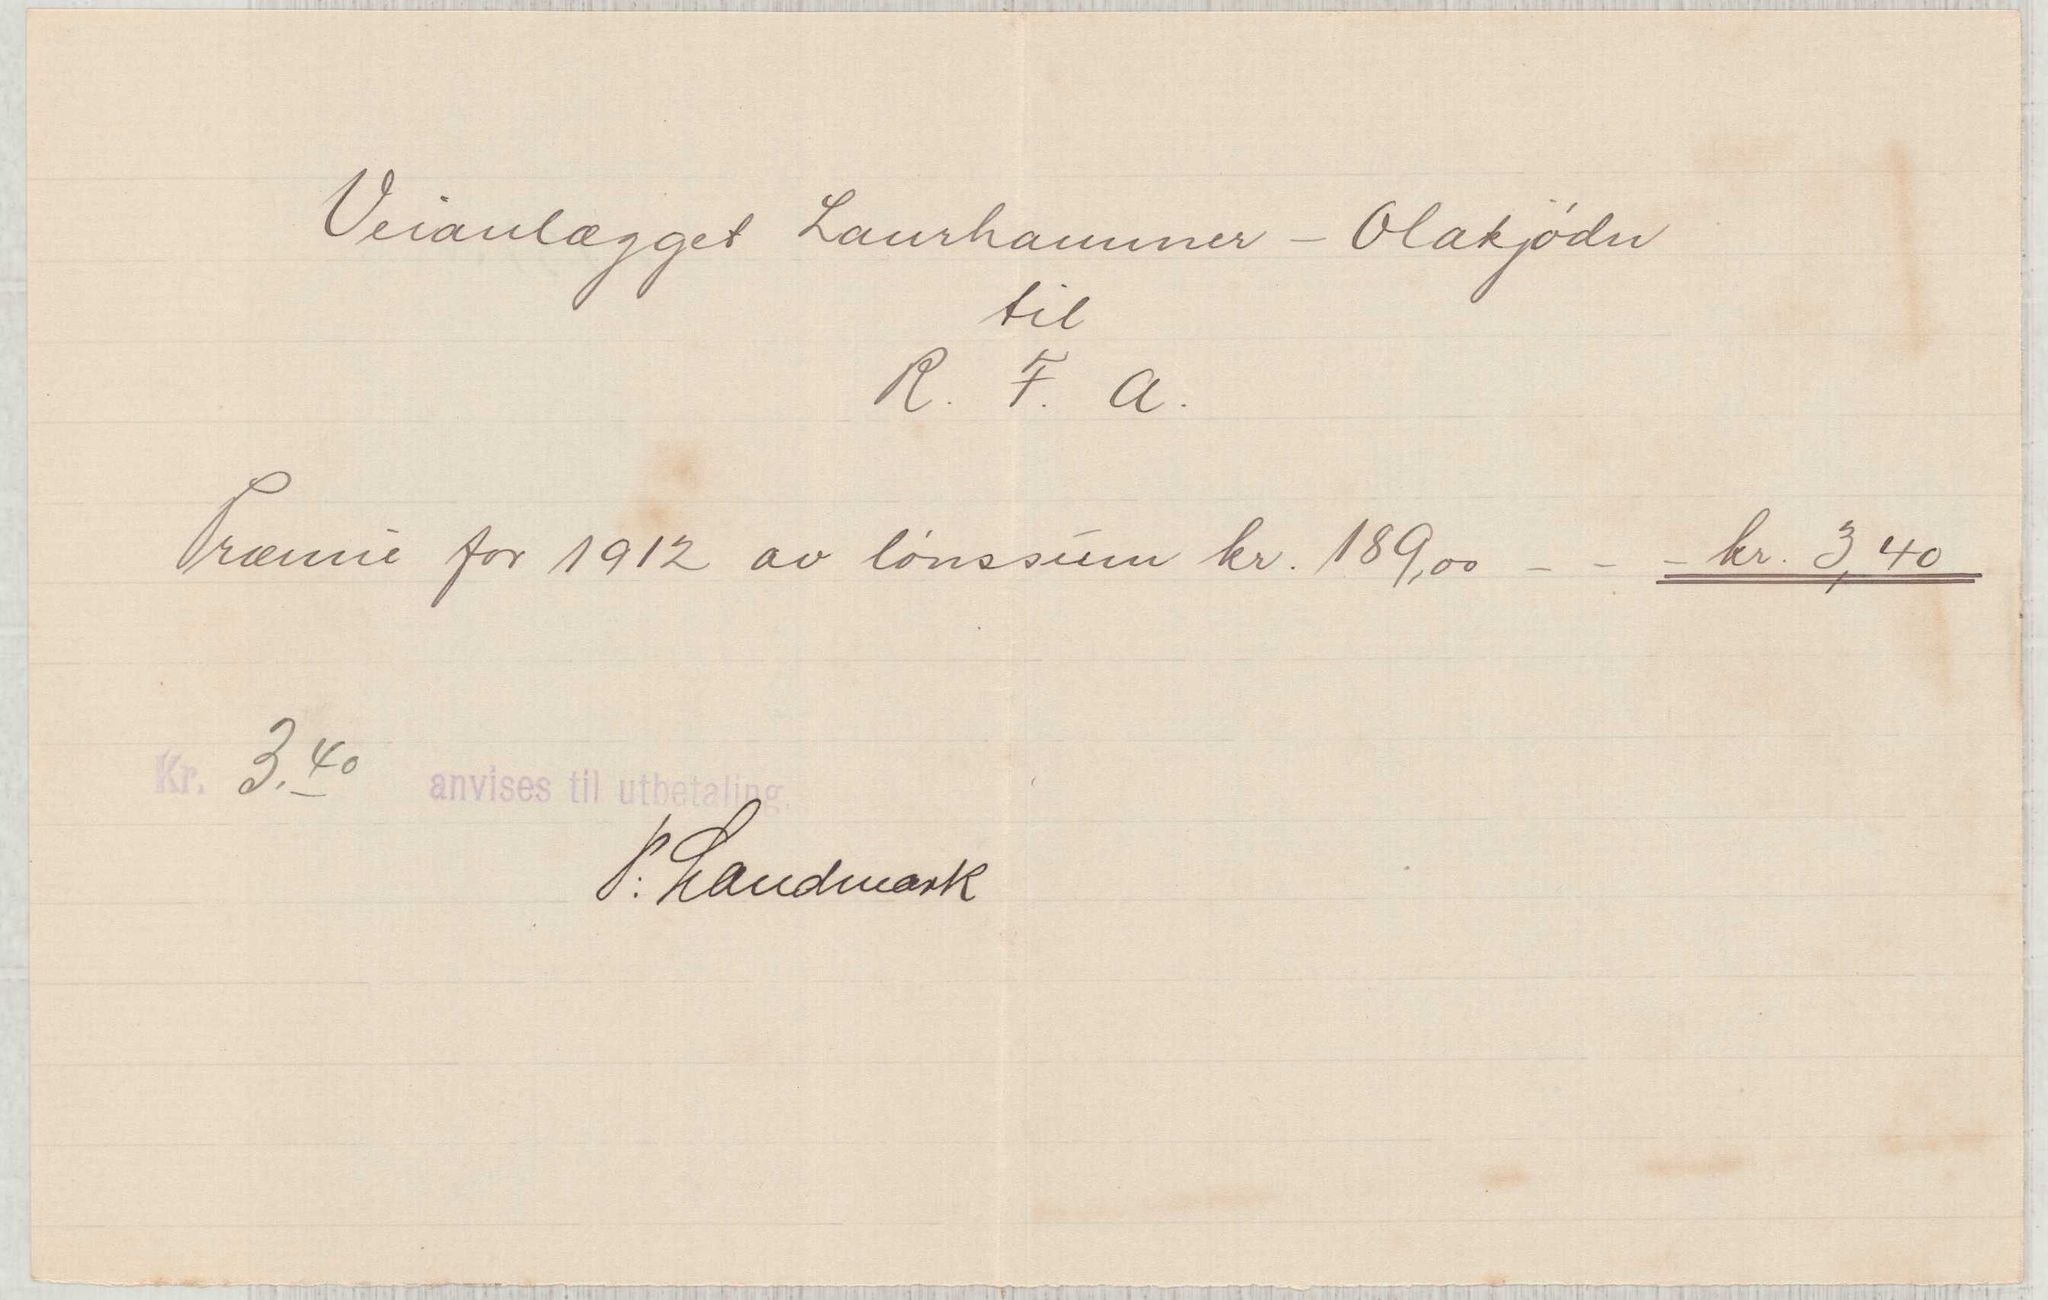 Veianlægget Laurhammer – Olakjødn
til
R. F. A.
Præmie for 1912 av lønssum kr. 189,00 - - - kr. 3,40
Kr. 3.40 anvises til utbetaling.
P. Landmark